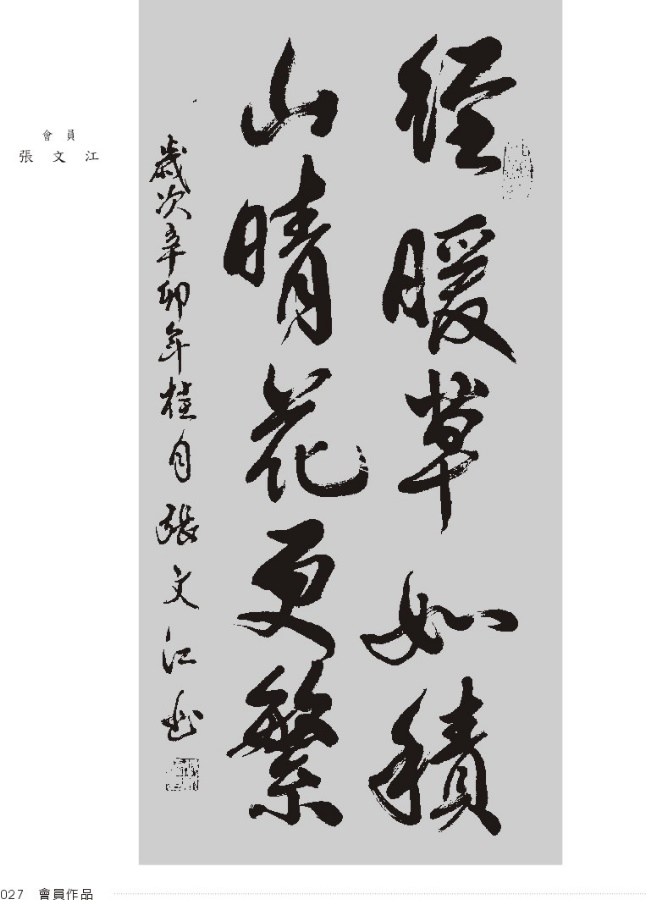 徑暖草如積
山晴花更繁
歲次辛卯年桂月張文江書
會員
張文江
027 會員作品